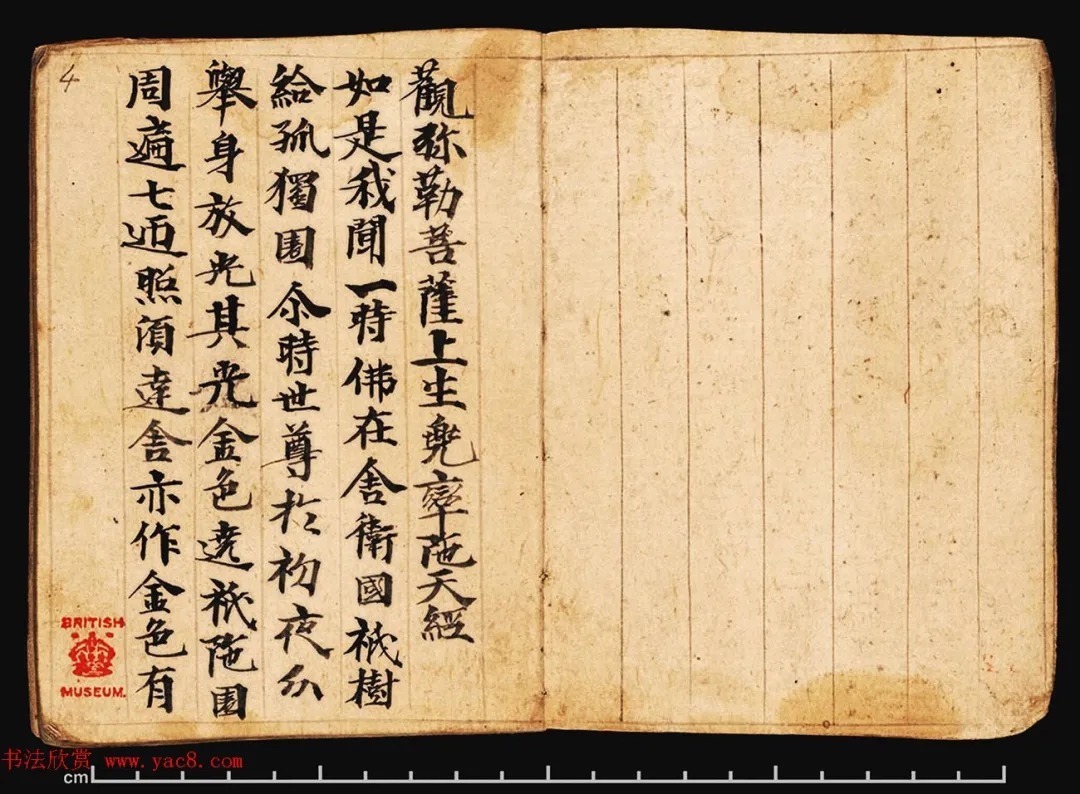 觀弥勒菩薩上生兜率陁天經
如是我聞一時佛在舍衛國祇樹
給孤獨園尒時世尊於初夜分
舉身放光其光金色遶祇陁園
周遍七迊照須達舍亦作金色有
4
BRITISH
MUSEUM.
书法欣赏 www.yac8.com
cm